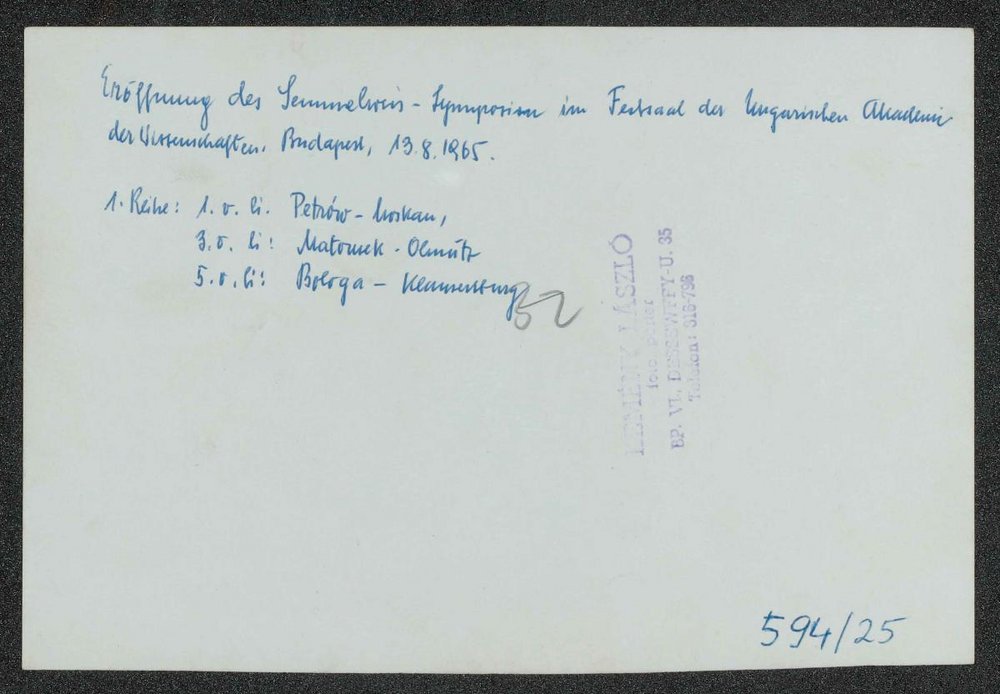 Eröffnung des Semmelweis-Symposium im Festsaal der Ungarischen Akademie
der Wissenschaften, Budapest, 13.8.1965.
1. Reihe: 1. v. li. Petrów - Moskau,
3. v. li: Matousek - Olmütz
5. v. li: Bologa - Klausenburg
52
LÁSZLÓ
BP. VI., DESSEWFFY-U. 35
Telefon: 316-796
594/25